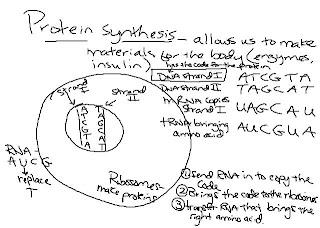 Protein Synthesis - allows us to make
materials for the body (enzymes,
insulin)
has the code for the protein
DNA strand I ATCGTA
DNA strand II TAGCAT
mRNA copies
strand I UAGCAU
tRNA bringing
amino acid AUCGUA
strand
I
strand
II
A T
T A
C G
G C
T A
A T
RNA-
AUCG
replace
T
Ribosomes
make proteins
① send RNA in to copy the
code
② Brings the code to the ribosomes
③ transfer RNA that brings the
right amino acid.